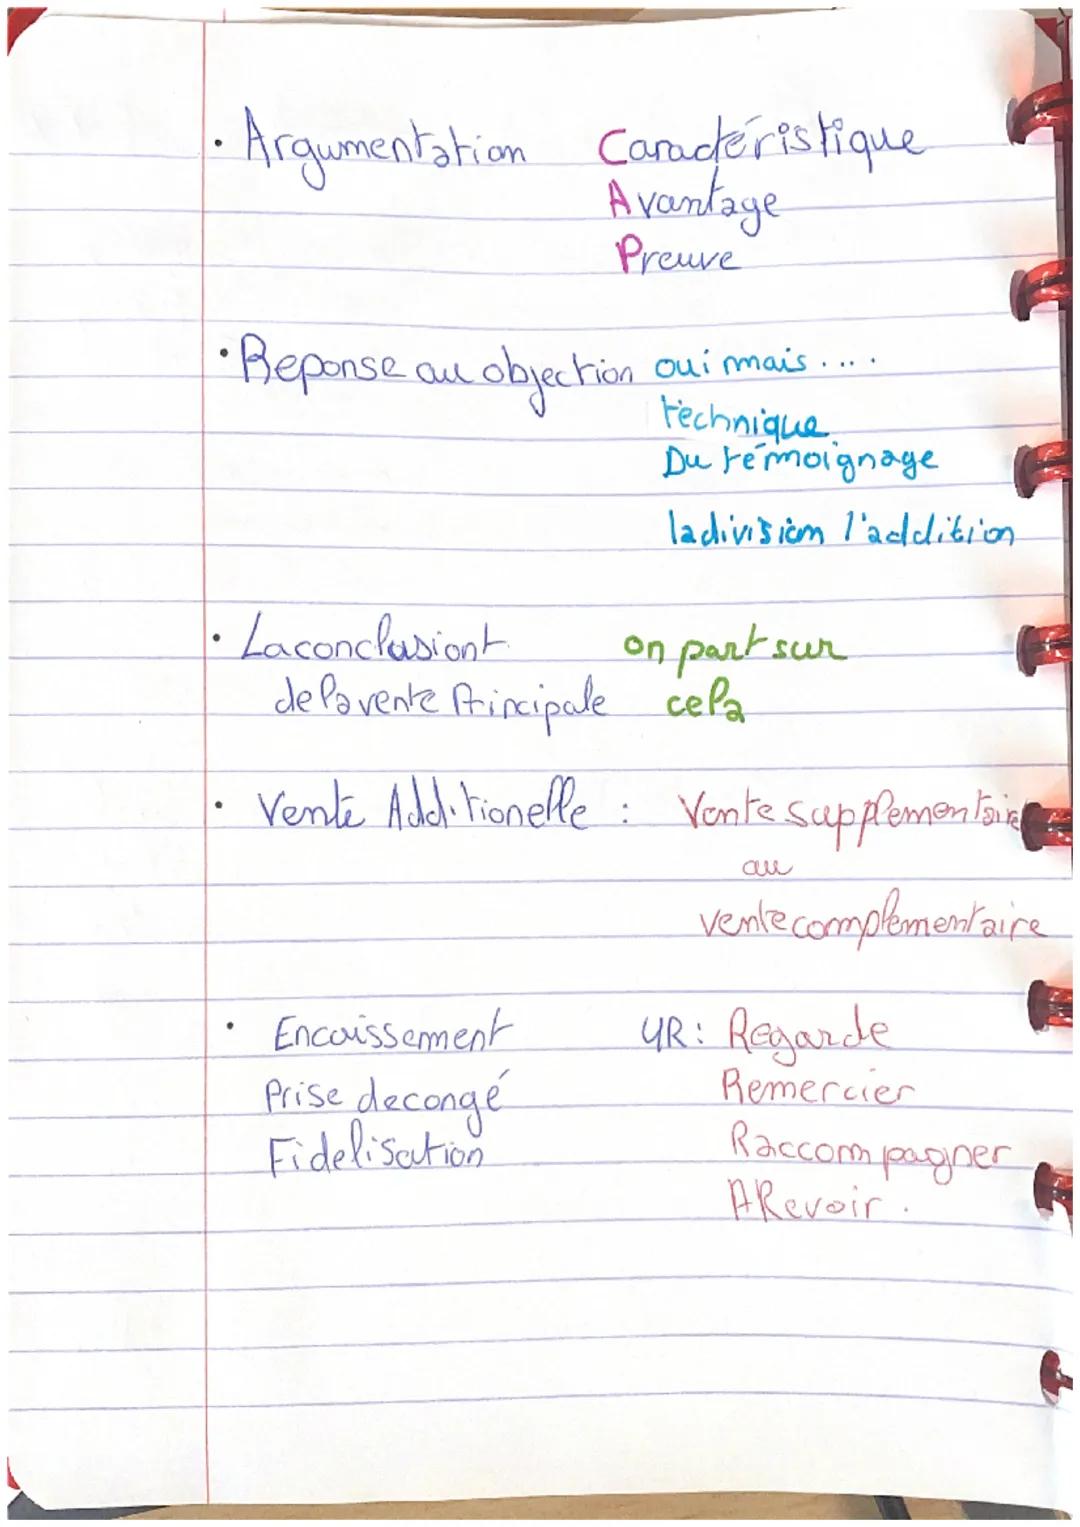 · Argumentation Caractéristique
Avantage
Preuve
· Reponse au objection oui mais....
technique
Du témoignage
la division l'addition
· La conclusiont on part sur
de la vente Principale cela
· Vente Additionelle : Vente supplementaire
au
vente complementaire
· Encaissement 4R: Regarde
Prise de congé Remercier
Fidelisation Raccompagner
A Revoir.